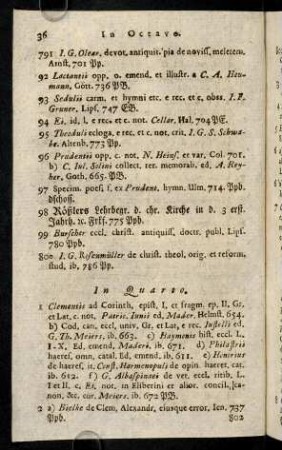 36 In Octavo.
791 I. G. Olear. devot. antiquit. pia de noviss. meletem.
Arnst. 701 Pp.
92 Lactantii opp. o. emend. et illustr. a C. A. Heu-
mann, Gött. 736 PB.
93 Sedulii carm. et hymni etc. e rec. et c. obss. I. F.
Gruner. Lips. 747 EB.
94 Ei. id. l. e rec. et c. not. Cellar. Hal. 704 PE.
95 Theoduli ecloga. e rec. et c. not. crit. I. G. S. Schwa-
be. Altenb. 773 Pp.
96 Prudentii opp. c. not. N. Heins. et var. Col. 701.
b) C. Iul. Solini collect. rer. memorab. ed. A. Rey-
her, Goth. 665. PB.
97 Specim. poes. s. ex Prudent. hymn. Ulm. 714. Ppb.
dschoß.
98 Rößlers Lehrbegr. d. chr. Kirche in d. 3 erst.
Jahrh. ꝛc. Frkf. 775 Ppb.
99 Burscher eccl. christ. antiquiss. doctr. publ. Lips.
780 Ppb.
800 I. G. Rosenmüller de christ. theol. orig. et reform.
stud. ib. 786 Pp.
In Quarto.
1 Clementis ad Corinth. epist. I. et fragm. ep. II. Gr.
et Lat. c. not. Patric. Iunii ed. Mader. Helmst. 654.
b) Cod. can. eccl. univ. Gr. et Lat. e rec. Iustelli ed.
G. Th. Meiers, ib. 663. c) Haymonis hist. eccl. L.
I-X. Ed. emend. Maderi. ib. 671. d) Philastrii
haeres. omn. catal. Ed. emend. ib. 611. e) Henricus
de haeres. it. Const. Harmenopuli de opin. haeret. cat.
ib. 612. f) G. Albaspinaei de vet. eccl. ritib. L.
I et II. c. Ei. not. in Eliberini et alior. concil. can-
non. &c. cur. Meiers. ib. 672 PB.
2 a) Bielke de Clem. Alexandr. eiusque error. Ien. 737
Ppb. 802